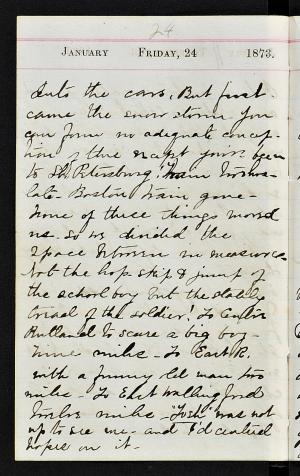 24
JANUARY FRIDAY, 24 1873.
Into the cars. But first
came the snow storm you
can form no adequate concep
tion of this except you've been
to St. Petersburg. Train
late - Boston train gone -
None of these things moved
us. So we divided the
space between us
Not the hop skip & jump of
the school boy but the stately
tread of the soldier! To Center
Rutland to scare a big boy -
nine miles - To East R.
with a funny old man two
miles - To East Wallingford
twelve miles - "Josh" was not
up to see me - and I'd
hopes on it -